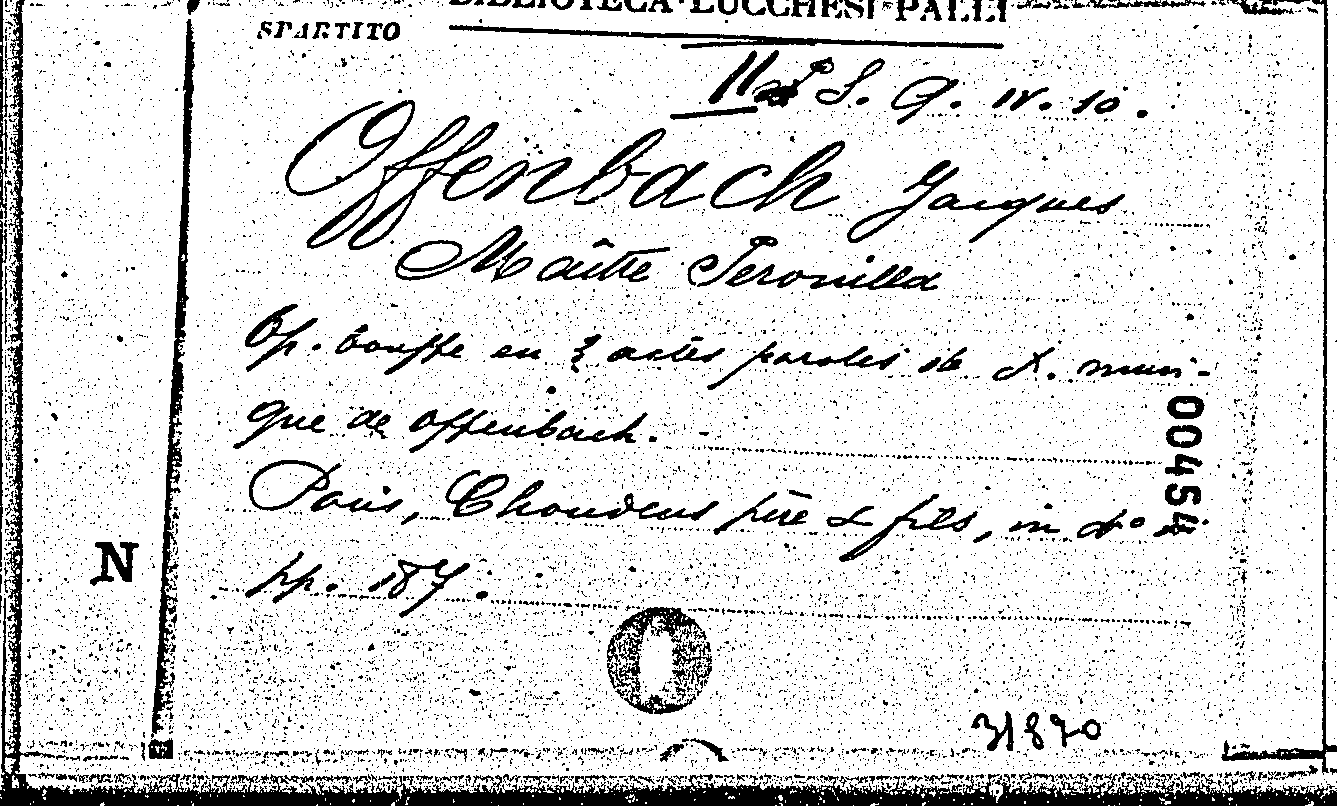 BIBLIOTECA LUCCHESI PALLI
SPARTITO
S. Q. IV. 10.
Offenbach Jacques
Maître Peronilla
Op. bouffe en 3 actes paroles de X. musi-
que de Offenbach.
Paris, Choudens père & fils, in 4°
pp. 187.
00454
N
31870